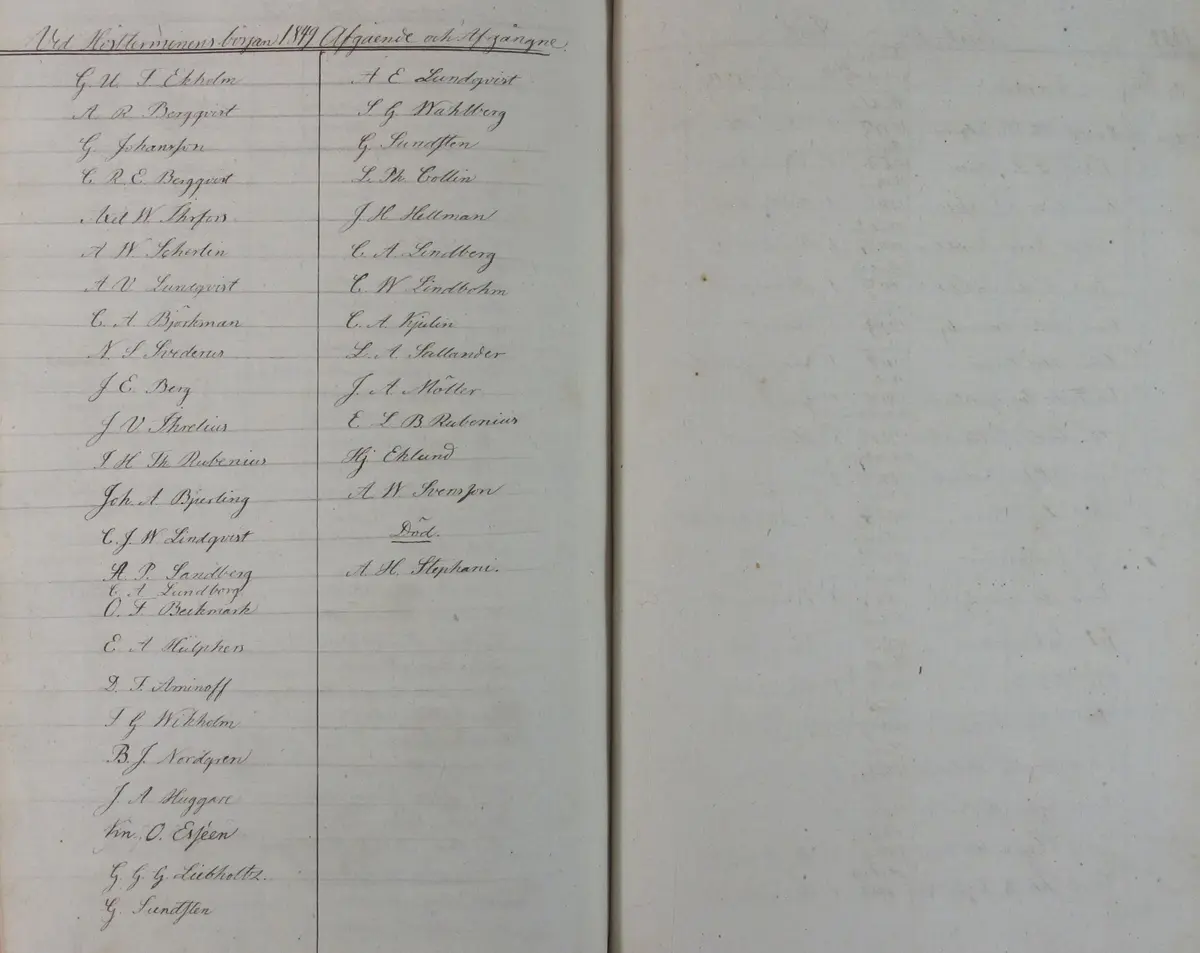 Ved Höstterminens början 1849
G. U. F Ekholm
A R Bergqvist
G. Johansson
C R E Bergqvist
Axel W Thrfors
A W Scherlin
A V Lundqvist
C. A Björkman
N. S Svederus
J E Berg
J V Threlius
F H Th Rubenius
Joh A Bjurling
C. J. W Lindqvist
A. P. Sandberg
C A Lundborg
O. F. Beckmark
E A Hülphers
D. F. Aminoff
F G Wikholm
B. J. Nordgren
J A Huggare
Kn. O. Esséen
G. G. G Liebholtz.
G. Sundsten
Afgående och Afgångne.
A E Lundqvist
F G Wahlberg
G Sundsten
L. Ph Collin
J. H Hellman
C A Lindberg
C. W Lindbohm
C. A. Kjulin
L. A Sallander
J. A Möller
E L B Rubenius
Hj Eklund
A W Svensson
Död.
A. H. Stephani.